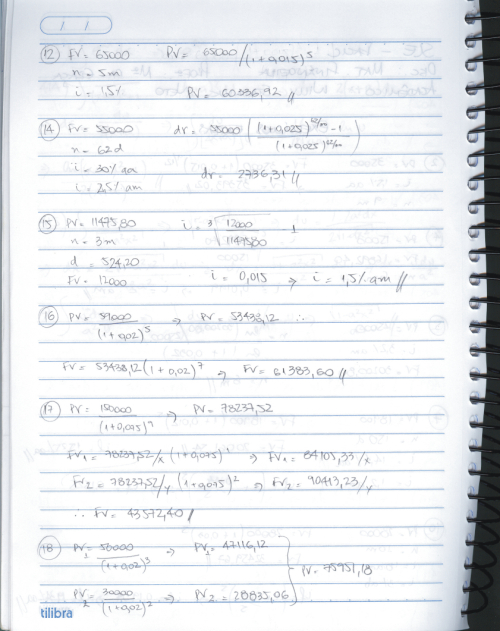 / /
12) FV = 65000 PV = 65000/(1+0,015)^5
n = 5m
i = 1,5% PV = 60336,92 //
14) FV = 55000 dr = 55000 ((1+0,025)^62/30 - 1 / (1+0,025)^62/30)
n = 62d
i = 30% aa dr = 2736,31 //
i = 2,5% am
15) PV = 11475,80 i = ³√(12000/11475,80) - 1
n = 3m
d = 524,20 i = 0,015 → i = 1,5% am //
FV = 12000
16) PV = 59000/(1+0,02)^5 → PV = 53438,12 ∴
FV = 53438,12 (1+0,02)^7 → FV = 61383,60 //
17) PV = /(1+0,075) → PV = 78237,52
FV1 = 78237,52/x (1+0,075)^1 → FV1 = 84105,33/x
FV2 = 78237,52/y (1+0,075)^2 → FV2 = 90413,23/y
∴ FV = 43572,40 /
18) PV1 = 50000/(1+0,02)^3 → PV1 = 47116,12
PV = 75951,18
PV2 = 30000/(1+0,02)^2 → PV2 = 28835,06
tilibra